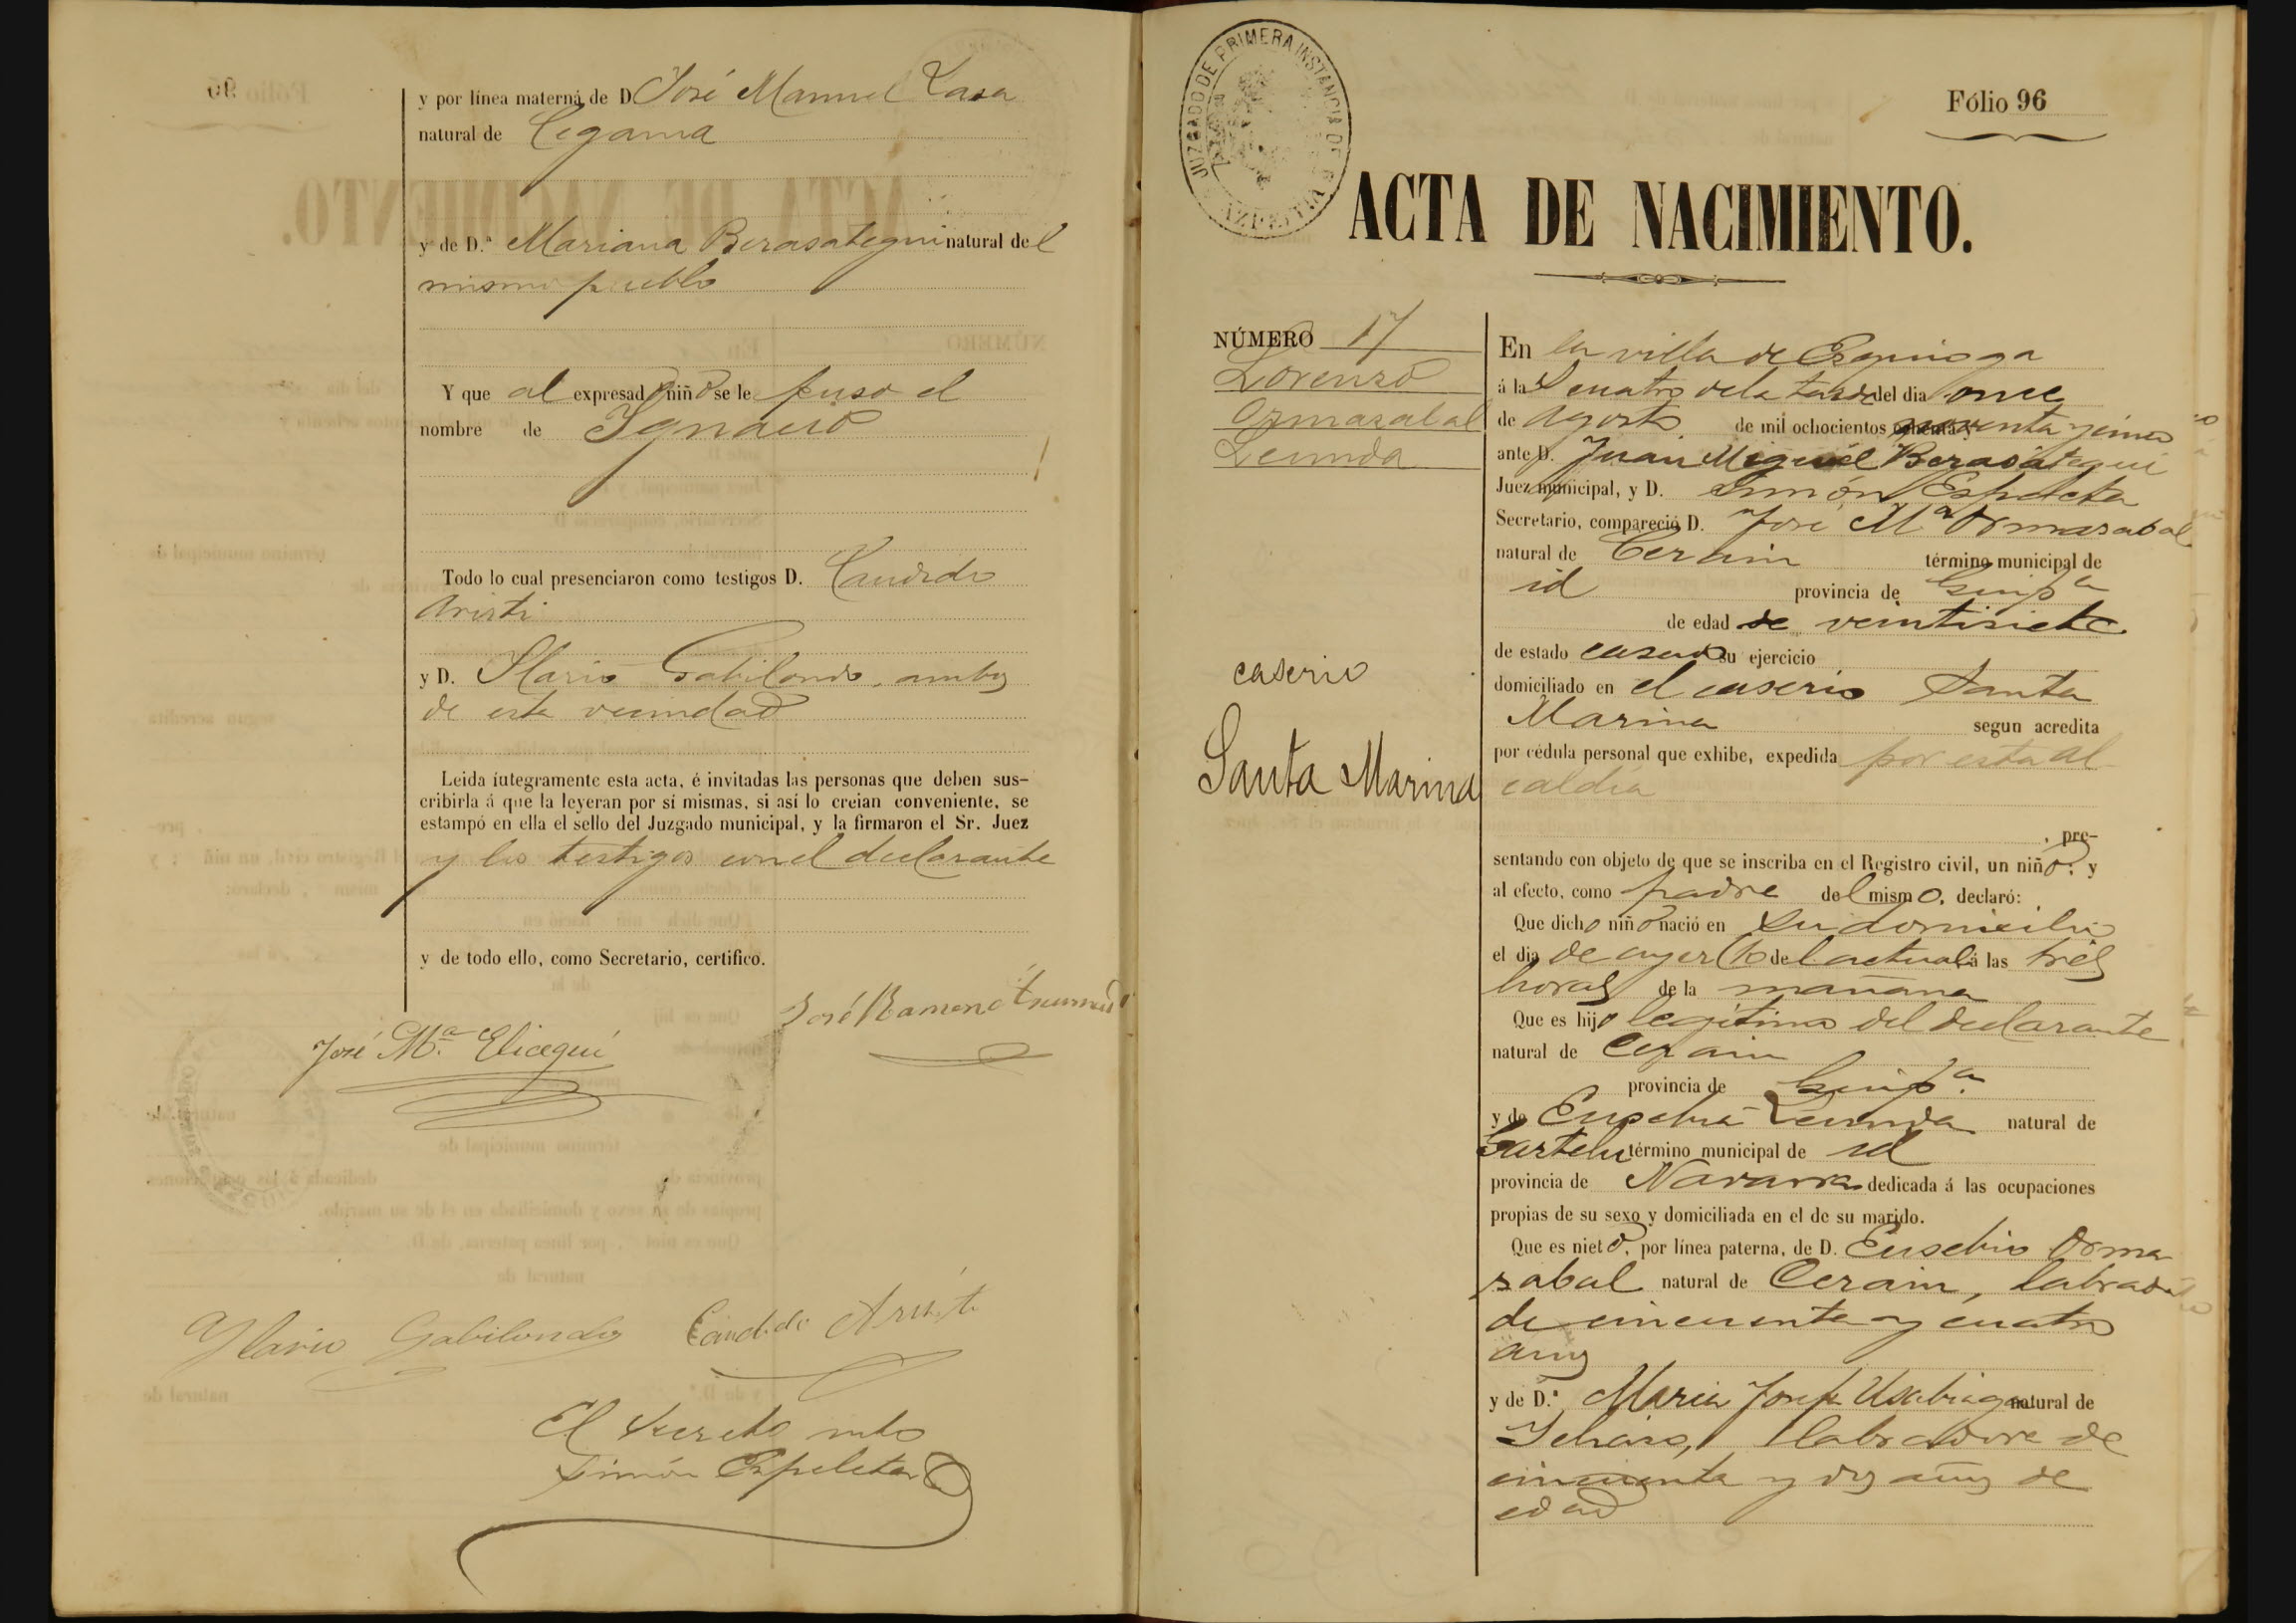 y por línea materna de D. José Manuel Lasa
natural de Cegama
y de D.ª Mariana Berasategui natural del
mismo pueblo
Y que al expresado niño se le puso el
nombre de Ignacio
Todo lo cual presenciaron como testigos D. Candido
Aristi
y D. Ilario Gabilondo, ambos
de esta vecindad
Leida íntegramente esta acta, é invitadas las personas que deben sus-
cribirla á que la leyeran por sí mismas, si así lo creian conveniente, se
estampó en ella el sello del Juzgado municipal, y la firmaron el Sr. Juez
y los testigos con el declarante
y de todo ello, como Secretario, certifico.
José Ramon
José M.ª Elicegui
Ylario Gabilondo Candido Aristi
El Secreto
Simón Espeleta
JUZGADO DE PRIMERA INSTANCIA DE AZPEITIA
Fólio 96
ACTA DE NACIMIENTO.
NÚMERO 17
Lorenzo
Ormazabal
Lecunda
caserio
Santa Marina
En la villa de Ezquioga
á las cuatro de la tarde del dia once
de Agosto de mil ochocientos noventa y
ante D. Juan Miguel Berasategui
Juez municipal, y D. Simón Espeleta
Secretario, compareció D. José M.ª Ormazabal
natural de Cerain término municipal de
id provincia de Guip.ª
de edad de veintisiete
de estado casado su ejercicio
domiciliado en el caserio Santa
Marina segun acredita
por cédula personal que exhibe, expedida por esta al
caldía
, pre-
sentando con objeto de que se inscriba en el Registro civil, un niño; y
al efecto, como padre del mismo, declaró:
Que dicho niño nació en su domicilio
el dia de ayer 10 del actual á las tres
horas de la mañana
Que es hijo legítimo del declarante
natural de Cerain
provincia de Guip.ª
y de Eusebia Lecunda natural de
Gaztelu término municipal de id
provincia de Navarra dedicada á las ocupaciones
propias de su sexo y domiciliada en el de su marido.
Que es nieto, por línea paterna, de D. Eusebio Orma
zabal natural de Cerain, labrador
de cincuenta y cuatro
años
y de D.ª Maria Josefa Usabiaga natural de
Ichaso, labradora de
cincuenta y dos años de
edad